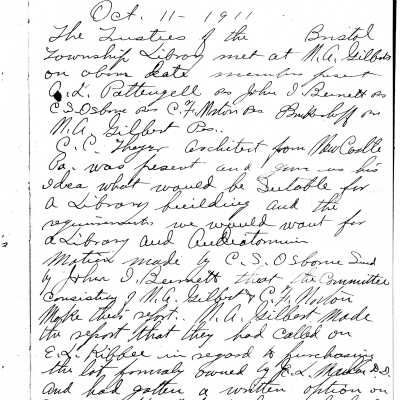 Oct. 11 - 1911
The Trustees of the Bristol
Township Library met at N.A. Gilberts
on abov date members prsent
A. L. Pattengell John I Bennett
C S Osborne C. F. Norton
N. A. Gilbert
G. C. Thayer Architect from New Castle
Pa. was present and gave us his
Idea what would be Suitable for
a Library building and the
requirements we would want for
a Library and Audatorium
Motion made by C. S. Osborne Snd
by John I. Bennett that the Committee
Consisting of N. A. Gilbert & C. F. Norton
Make their report. N. A. Gilbert made
the report that they had called on
E. L. Kibbee in regard to purchasing
the lot formaly owned by
and had gotten a written option on